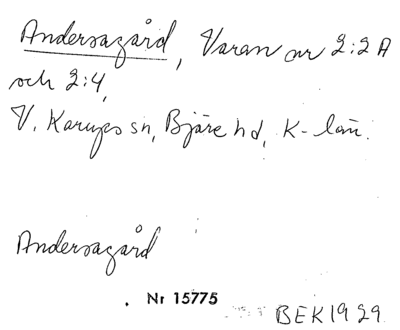 Andersagård, Varan nr 2:2 A
och 2:4,
V. Karups sn, Bjäre hd, K-län.
Andersagård
Nr 15775
BEK 1929